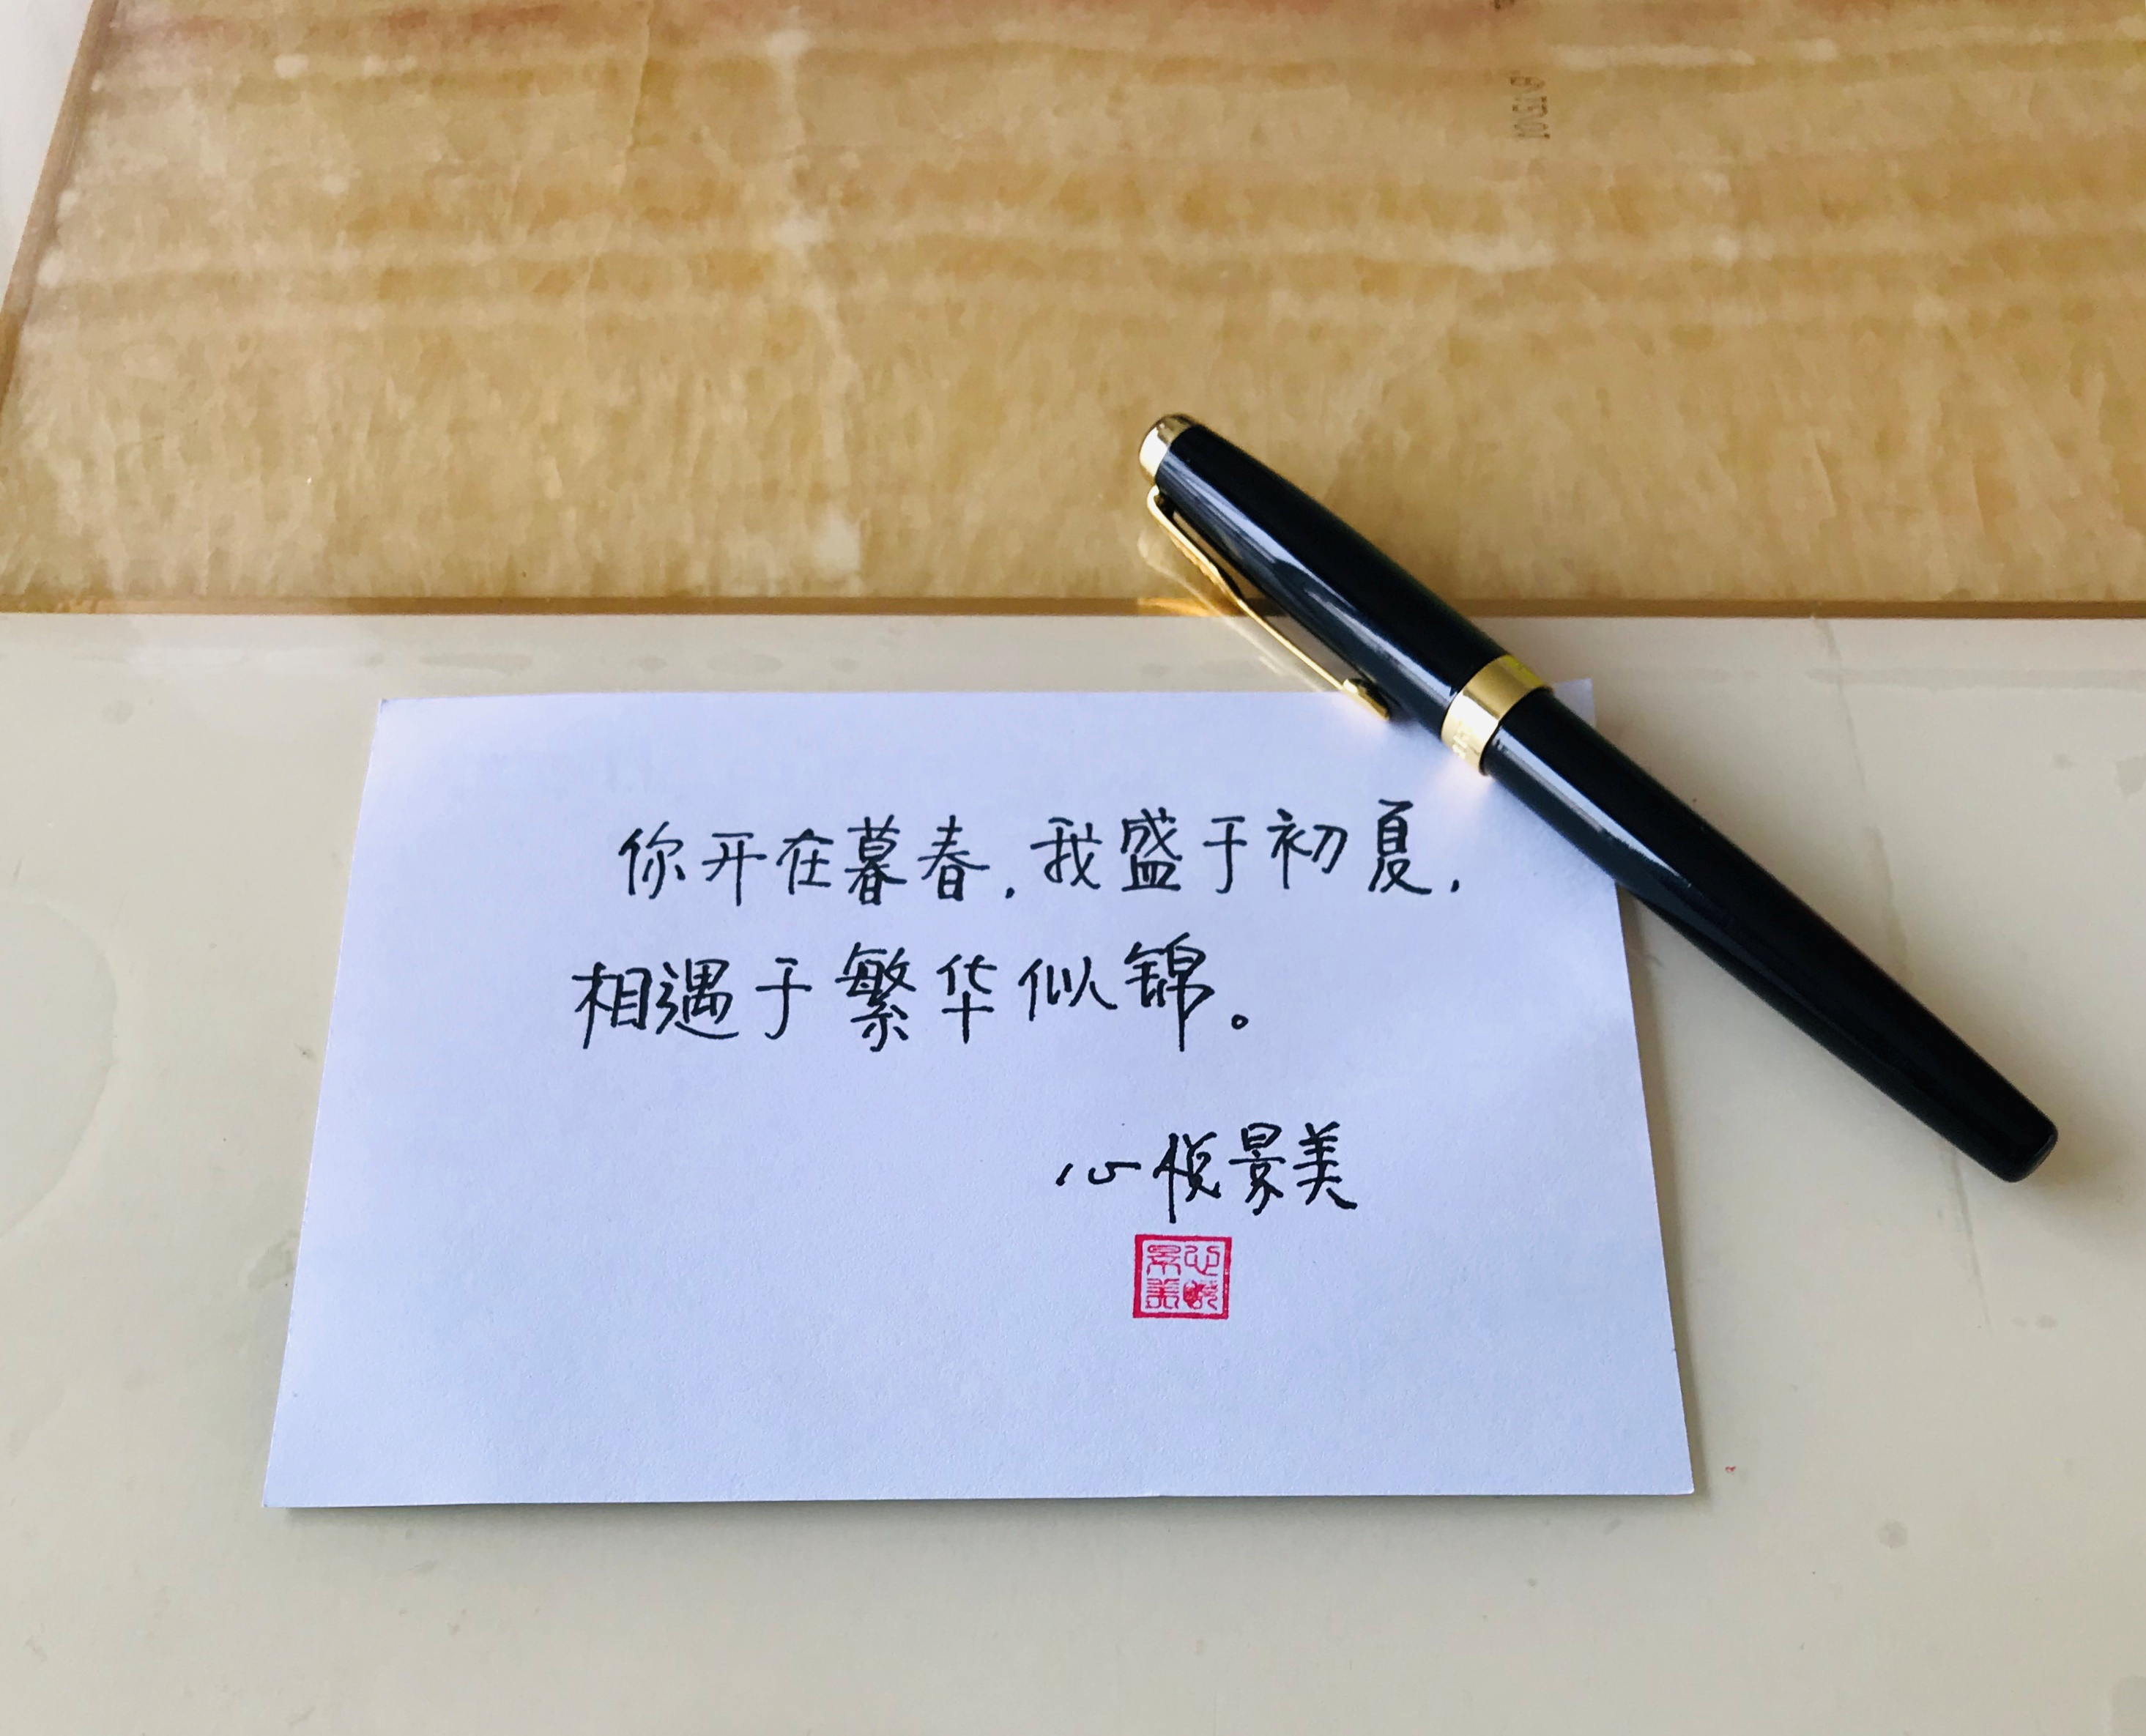 你开在暮春，我盛于初夏，
相遇于繁华似锦。
心悦景美
心悦景美